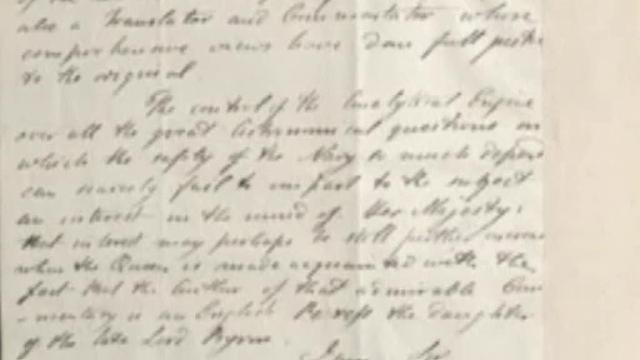 also a Translator and Commentator whose
comprehensive views have done full justice
to the original
The control of the Analytical Engine
over all the great Astronomical questions on
which the safety of the Navy so much depends
can scarcely fail to impart to the subject
an interest in the mind of Her Majesty:
that interest may perhaps be still further
when the Queen is made acquainted with the
fact that the Author of that admirable Com
-mentary is an English Peeress the daughter
of the late Lord Byron.
I am Sir